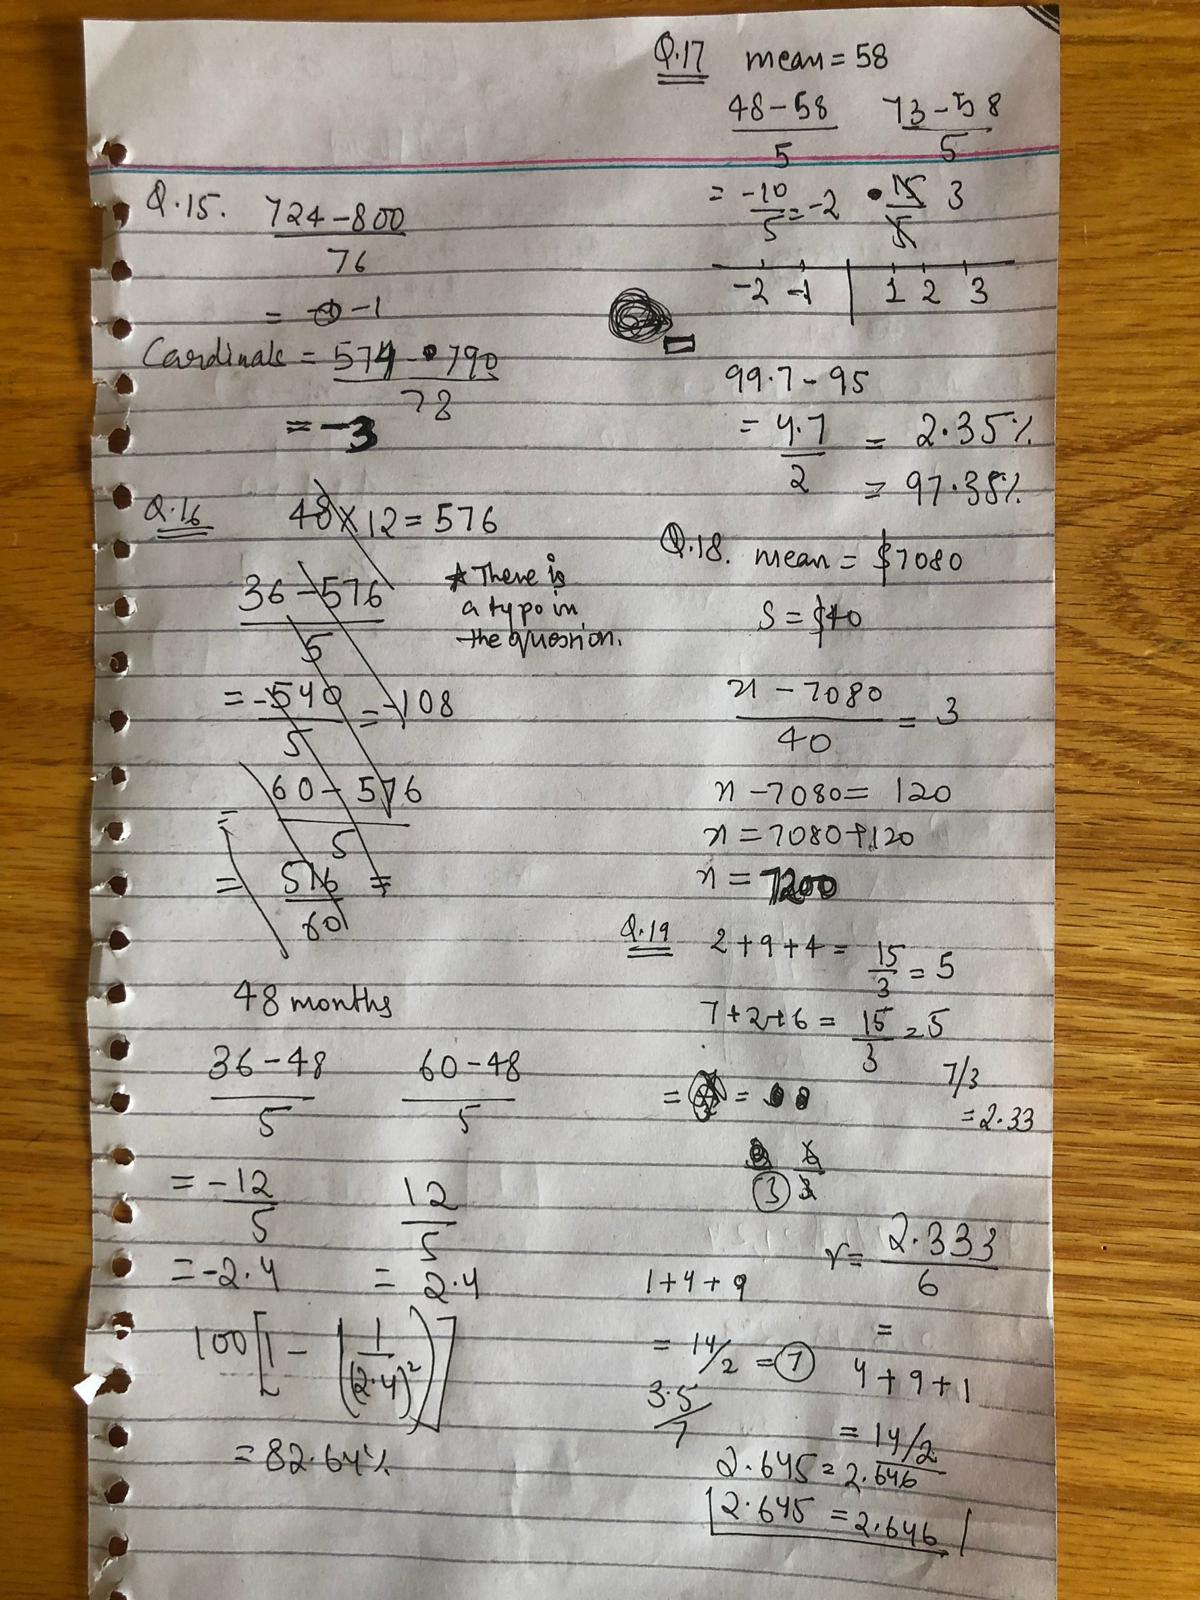 Q.15. 724-800
76
= -1
Cardinals = 574 - 790
78
= -3
Q.16 48 x 12 = 576
36 - 576
5
★ There is
a typo in
the question.
= -540 = -108
5
= 60 - 576
5
= 516 =
60
48 months
36-48 60-48
5 5
= -12 12
5 5
= -2.4 = 2.4
100[1 - (1/(2.4)²)]
= 82.64%
Q.17 mean = 58
48-58 73-58
5 5
= -10 = -2 15 3
5 5
-2 -1 | 1 2 3
99.7 - 95
= 4.7 = 2.35%
2 = 97.35%
Q.18. mean = $7080
S = $40
x - 7080 = 3
40
x - 7080 = 120
x = 7080 + 120
x = 7200
Q.19 2+9+4 = 15 = 5
3
7+2+6 = 15 = 5
3
7/3
= 2.33
3
r = 2.333
6
1+4+9 =
= 14/2 = 7 4+9+1
3.5 = 14/2
7
2.645 = 2.646
2.645 = 2.646